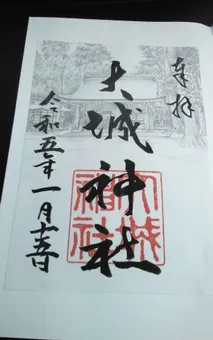 奉拝
大城神社
大城神社
令和五年一月十五日